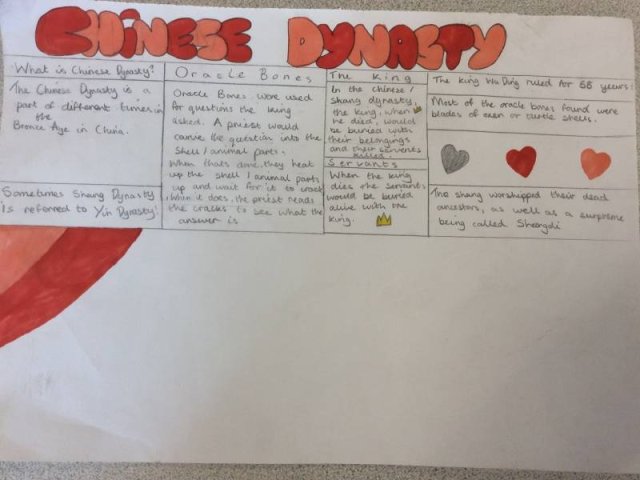 CHINESE DYNASTY
What is Chinese Dynasty?
The Chinese Dynasty is a
part of different times in
the
Bronze Age in China.
Sometimes Shang Dynasty
is referred to Yin Dynasty!
Oracle Bones
Oracle Bones were used
for questions the king
asked. A priest would
carve the question into the
shell / animal parts.
When thats done, they heat
up the shell / animal parts
up and wait for it to crack
when it does, the priest reads
the cracks to see what the
answer is
The King
In the chinese /
shang dynasty,
the king, when
he died, would
be buried with
their belongings
and their servents
killed.
Servants
When the king
dies the servants
would be buried
alive with the
king.
The king Wu Ding ruled for 56 years!
Most of the oracle bones found were
blades of oxen or turtle shells.
The shang worshipped their dead
ancestors, as well as a surprime
being called Shangdi